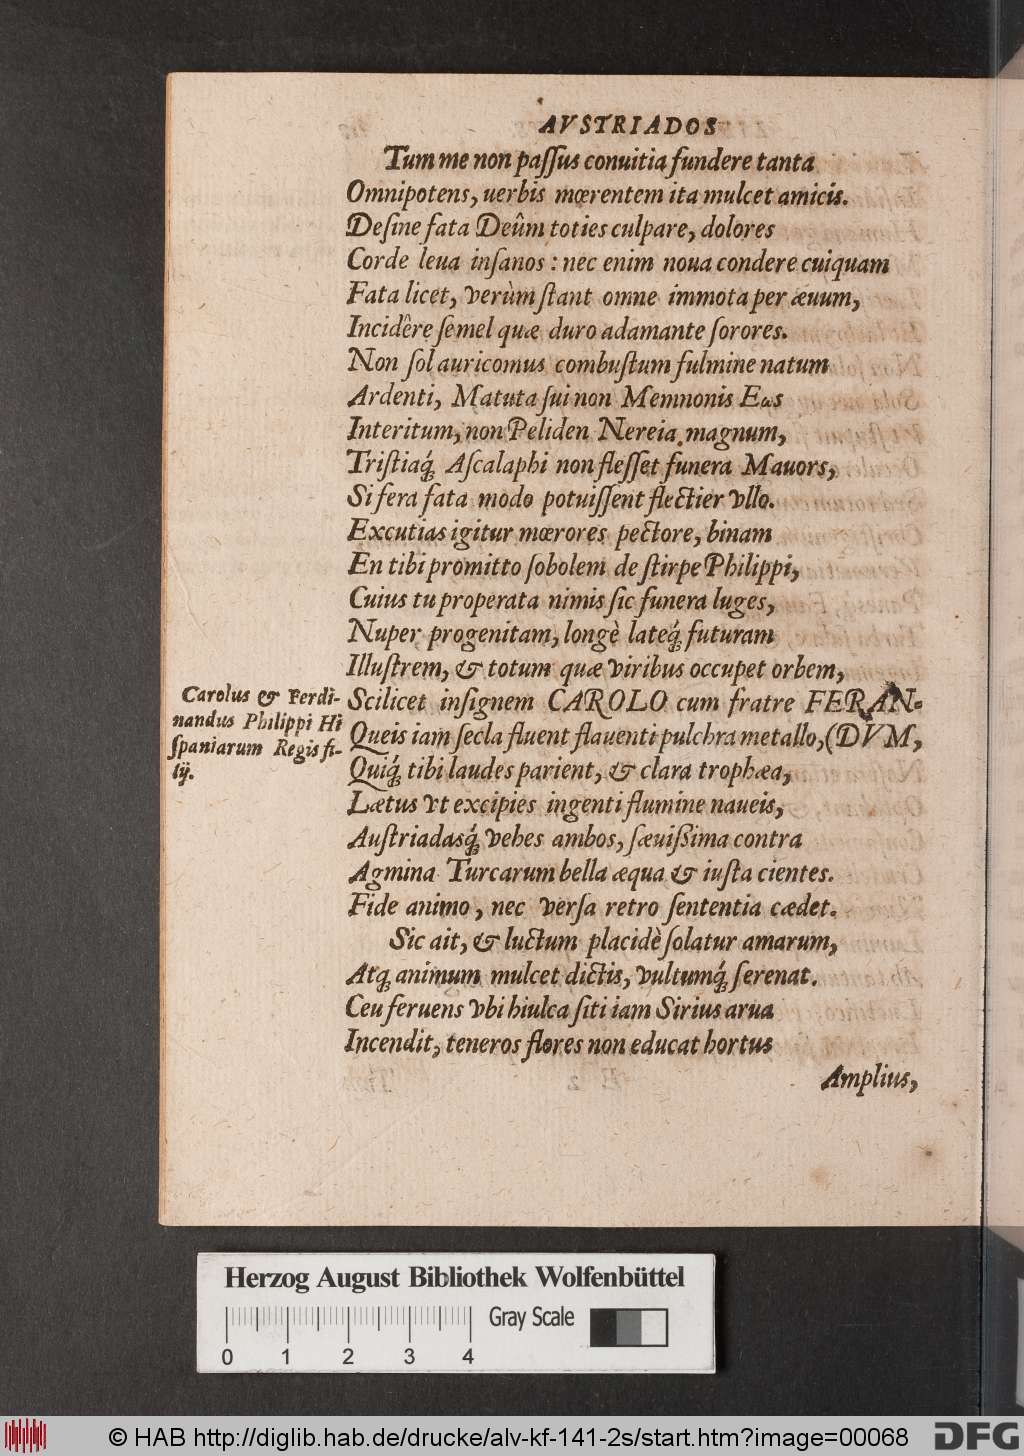 AVSTRIADOS
Tum me non paſſus conuitia fundere tanta
Omnipotens, uerbis mœrentem ita mulcet amicis.
Deſine fata Deûm toties culpare, dolores
Corde leua inſanos: nec enim noua condere cuiquam
Fata licet, verùm ſtant omne immota per æuum,
Incidêre ſemel quæ duro adamante ſorores.
Non ſol auricomus combuſtum fulmine natum
Ardenti, Matuta ſui non Memnonis Eωs
Interitum, non Peliden Nereia magnum,
Triſtiaq́; Aſcalaphi non fleſſet funera Mauors,
Si fera fata modo potuiſſent flectier vllo.
Excutias igitur mœrores pectore, binam
En tibi promitto ſobolem de ſtirpe Philippi,
Cuius tu properata nimis ſic funera luges,
Nuper progenitam, longè lateq́; futuram
Illuſtrem, & totum quæ viribus occupet orbem,
Scilicet inſignem CAROLO cum fratre FERAN-
Queis iam ſecla fluent flauenti pulchra metallo, (DVM,
Quiq́; tibi laudes parient, & clara trophæa,
Lætus vt excipies ingenti flumine naueis,
Auſtriadasq́; vehes ambos, ſæuißima contra
Agmina Turcarum bella æqua & iuſta cientes.
Fide animo, nec verſa retro ſententia cædet.
Sic ait, & luctum placidè ſolatur amarum,
Atq; animum mulcet dictis, vultumq́; ſerenat.
Ceu feruens vbi hiulca ſiti iam Sirius arua
Incendit, teneros flores non educat hortus
Amplius,
Carolus & Ferdi-
nandus Philippi Hi
ſpaniarum Regis fi-
lij.
Herzog August Bibliothek Wolfenbüttel
Gray Scale
0 1 2 3 4
© HAB http://diglib.hab.de/drucke/alv-kf-141-2s/start.htm?image=00068
DFG